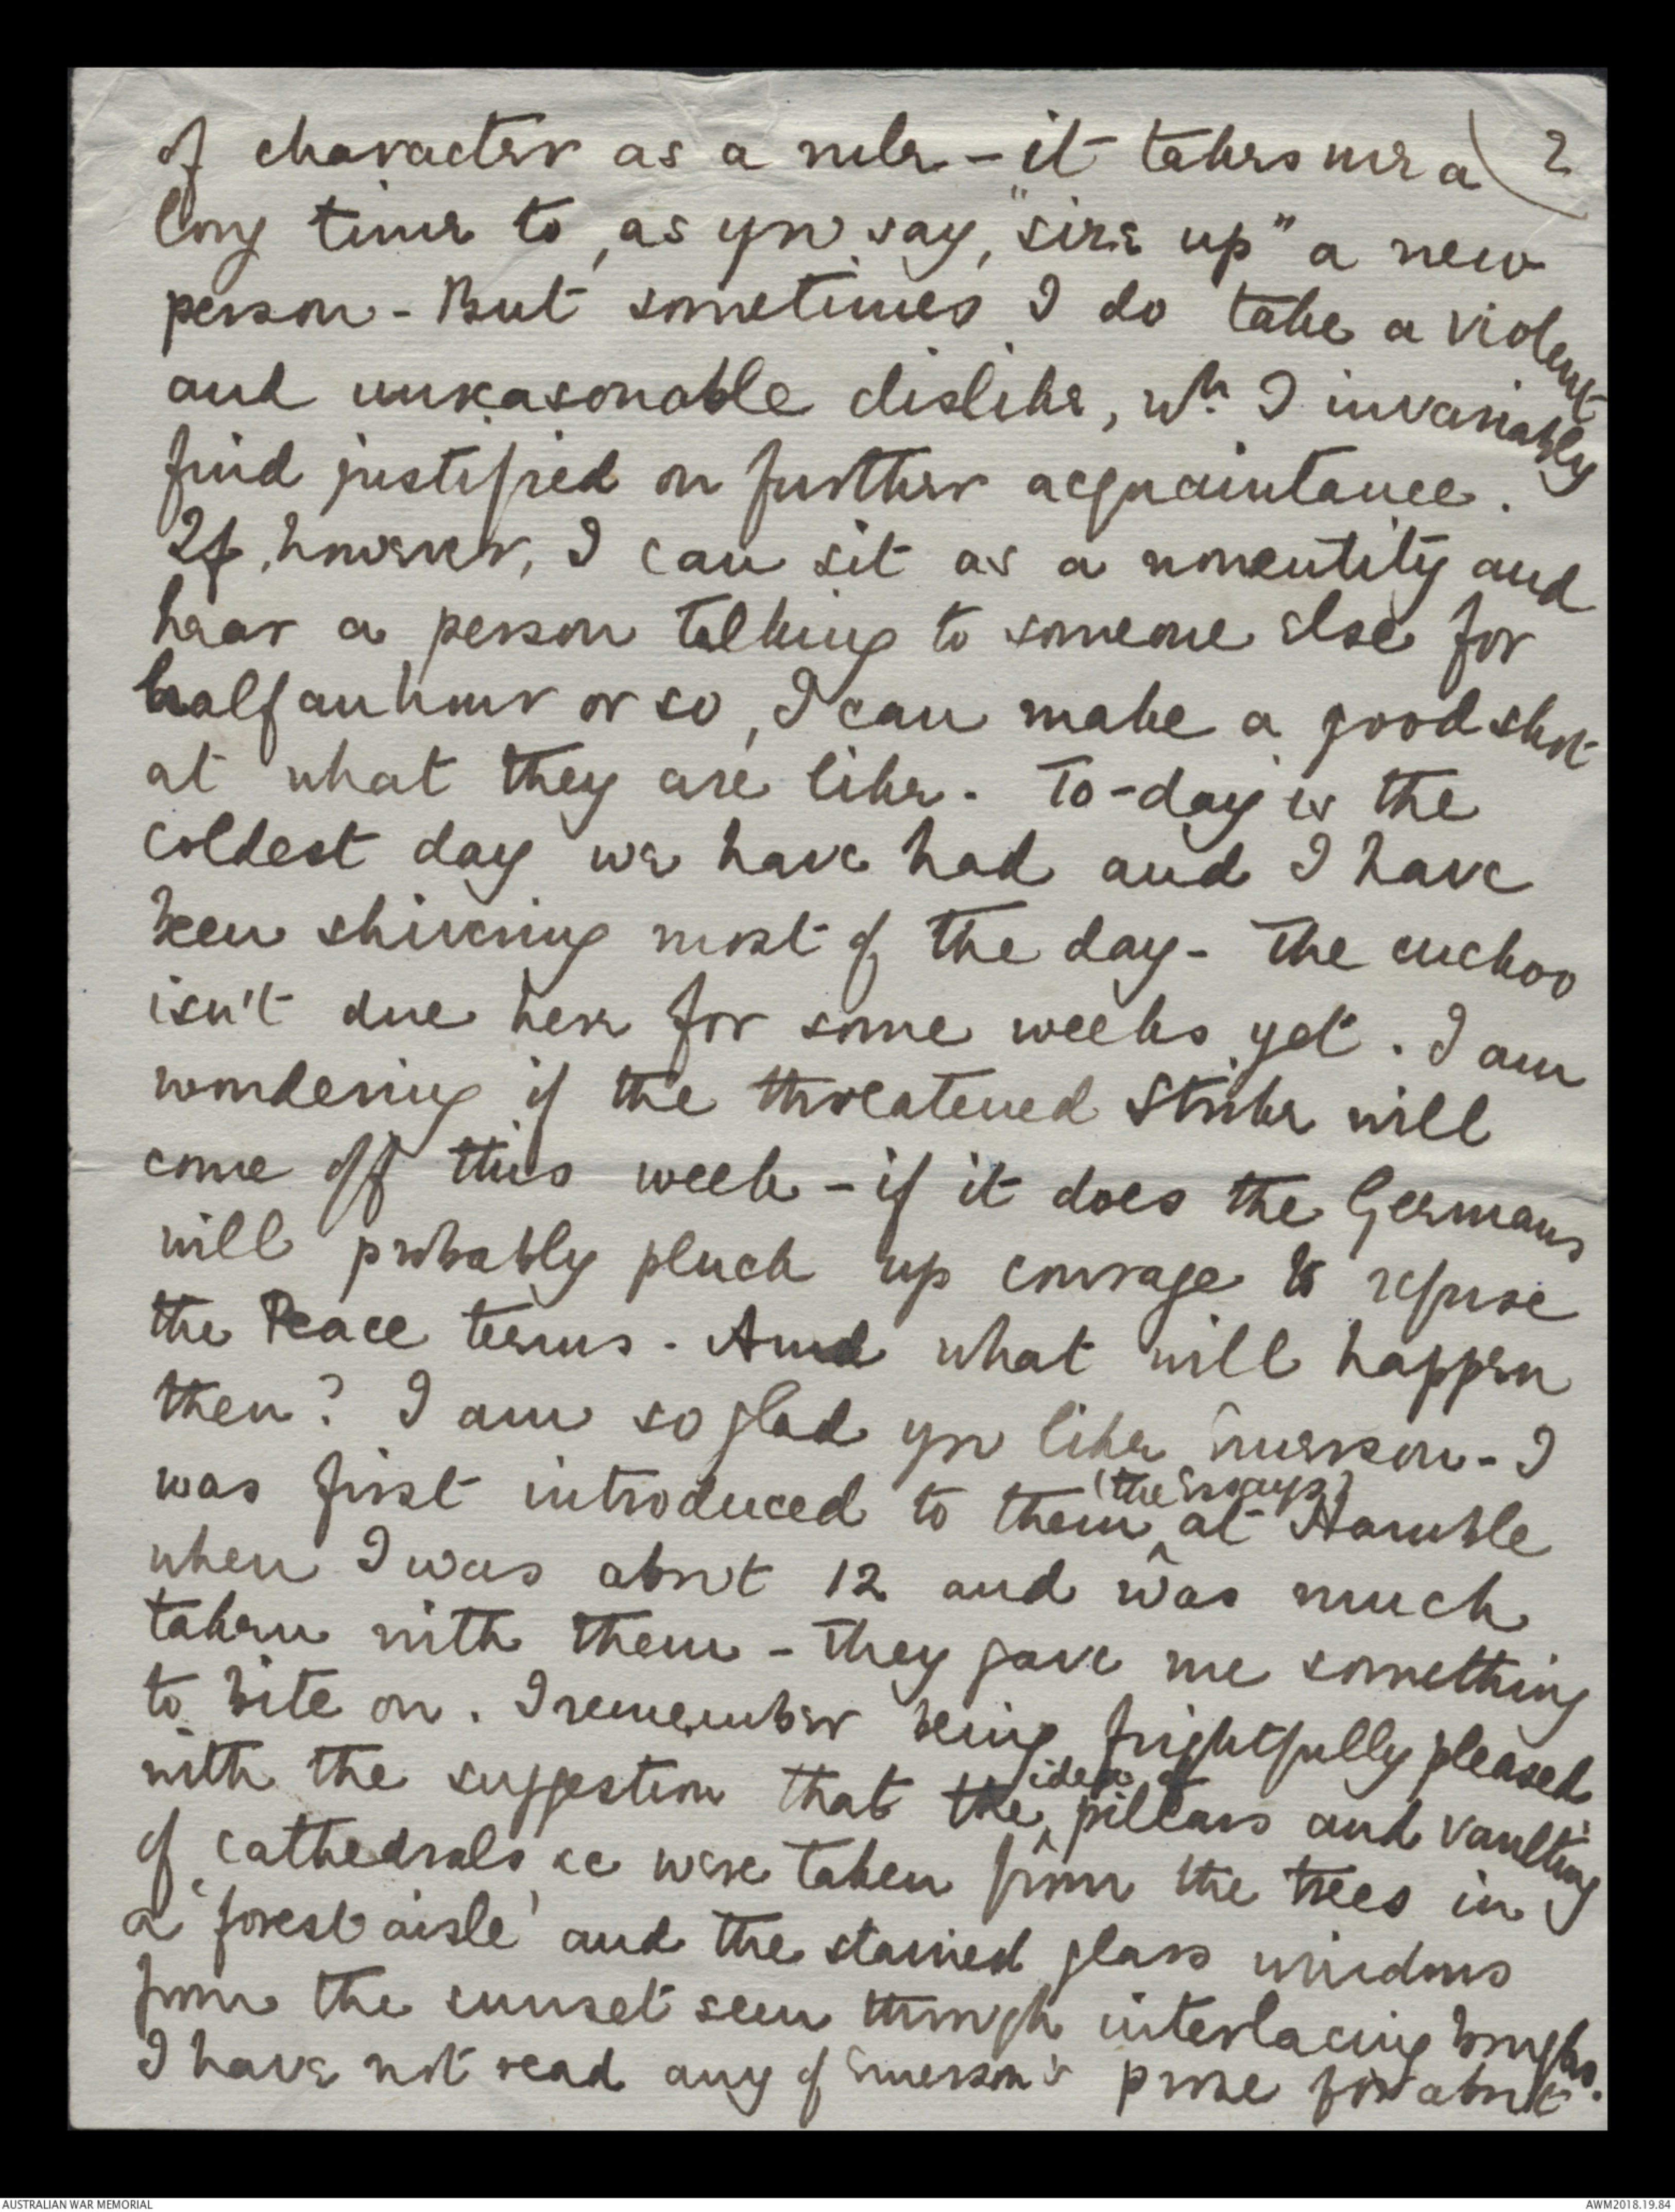 2
of character as a rule - it takes me a
long time to, as you say, "size up" a new
person - But sometimes I do take a violent
and unreasonable dislike, wh. I invariably
find justified on further acquaintance.
If, however, I can sit as a nonentity and
hear a person talking to someone else for
half an hour or so, I can make a good shot
at what they are like. To-day is the
coldest day we have had and I have
been shivering most of the day - The cuckoo
isn't due here for some weeks yet. I am
wondering if the threatened Strike will
come off this week - if it does the Germans
will probably pluck up courage to refuse
the Peace terms. And what will happen
then? I am so glad you like Emerson - I
was first introduced to them (the Essays) at Hamble
when I was about 12 and was much
taken with them - They gave me something
to bite on. I remember being frightfully pleased
with the suggestion that the idea of pillars and vaulting
of cathedrals &c were taken from the trees in
a 'forest aisle' and the stained glass windows
from the sunset seen through interlacing boughs.
I have not read any of Emerson's prose for about
AUSTRALIAN WAR MEMORIAL
AWM2018.19.84